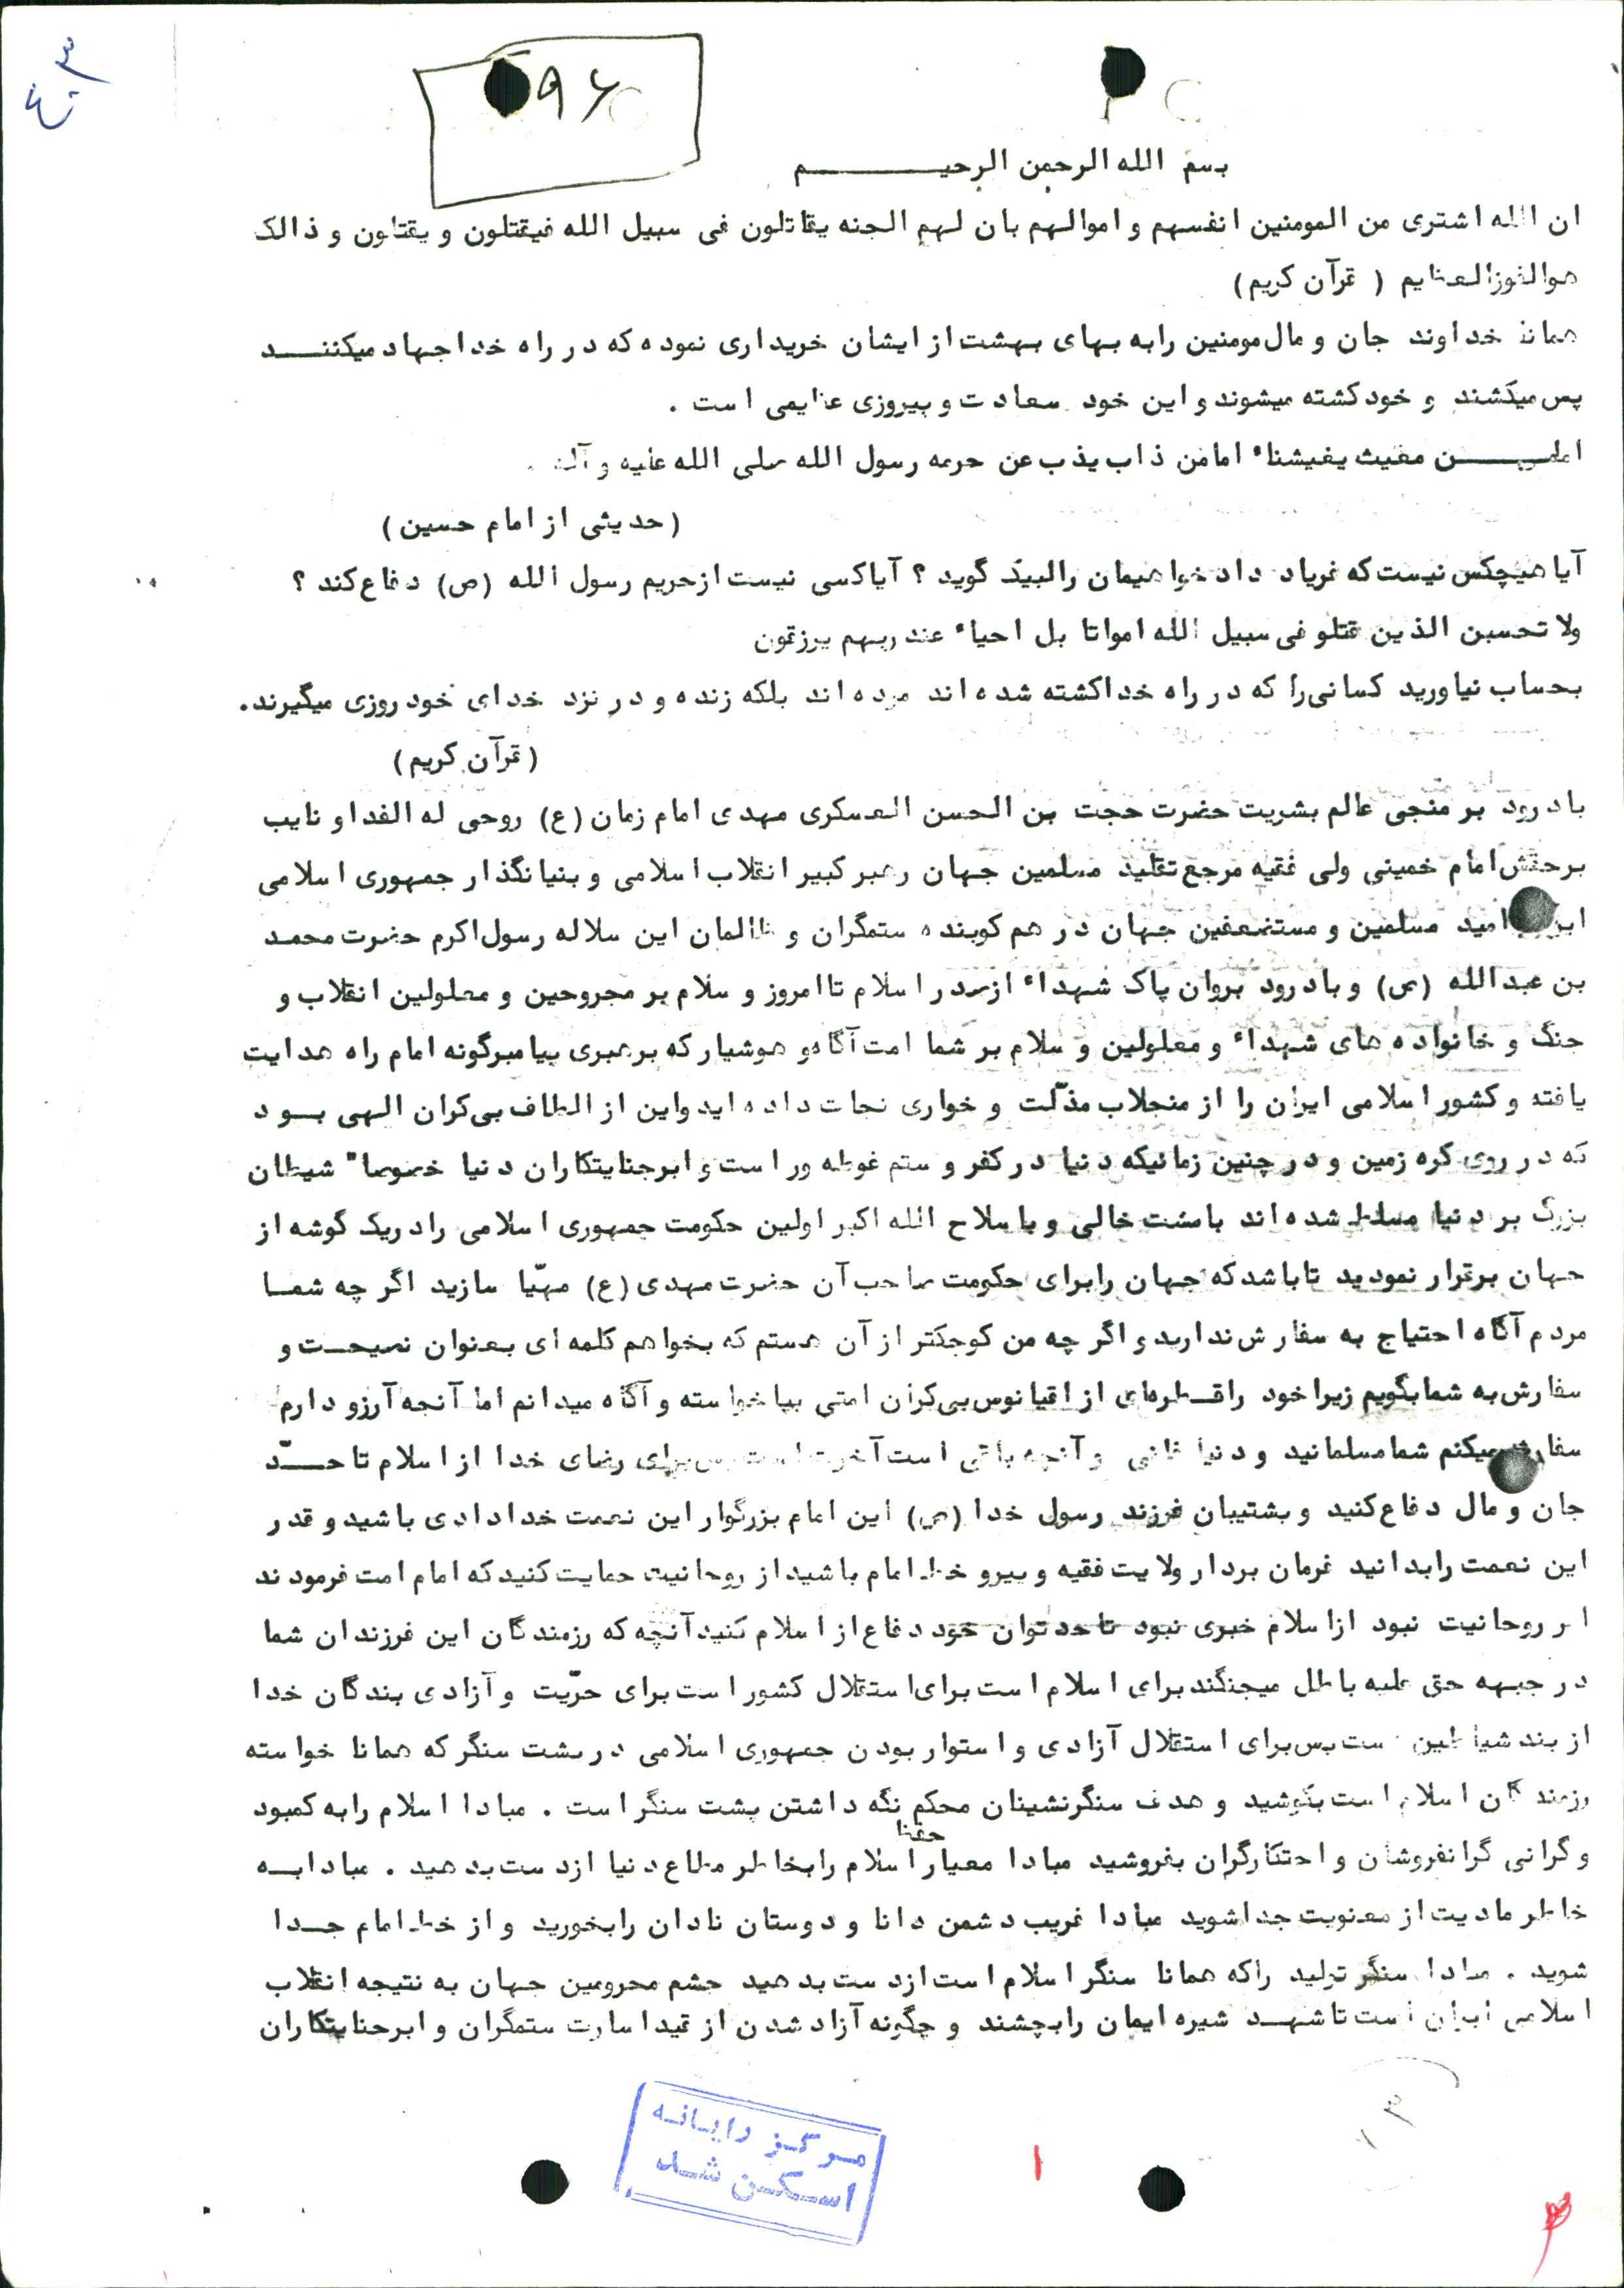 ۳
۹۶
بسم الله الرحمن الرحیـــــــم
ان الله اشتری من المومنین انفسهم و اموالهم بان لهم الجنه یقاتلون فی سبیل الله فیقتلون و یقتلون و ذالک
هوالفوزالعظیم ( قرآن کریم)
همانا خداوند جان و مال مومنین رابه بهای بهشت از ایشان خریداری نموده که در راه خدا جهاد میکننـــد
پس میکشند و خود کشته میشوند و این خود سعادت و پیروزی عظیمی است .
مغیث یغیثناء امامن ذاب یذب عن حرمه رسول الله صلی الله علیه و آله .
(حدیثی از امام حسین )
آیا هیچکس نیست که فریاد دادخواهیمان رالبیک گوید ؟ آیاکسی نیست ازحریم رسول الله (ص) دفاع کند ؟
ولا تحسبن الذین قتلو فی سبیل الله امواتا بل احیاء عند ربهم یرزقون
بحساب نیاورید کسانی را که در راه خدا کشته شده اند مرده اند بلکه زنده و در نزد خدای خود روزی میگیرند.
(قرآن کریم)
بادرود بر منجی عالم بشریت حضرت حجت بن الحسن العسکری مهدی امام زمان (ع) روحی له الفدا و نایب
برحقش امام خمینی ولی فقیه مرجع تقلید مسلمین جهان رهبر کبیر انقلاب اسلامی و بنیانگذار جمهوری اسلامی
امید مسلمین و مستضعفین جهان در هم کوبنده ستمگران و ظالمان این سلاله رسول اکرم حضرت محمد
بن عبدالله (ص) و بادرود بروان پاک شهداء ازصدر اسلام تا امروز و سلام بر مجروحین و معلولین انقلاب و
جنگ و خانواده های شهداء و معلولین و سلام بر شما امت آگاه و هوشیار که برهبری پیامبرگونه امام راه هدایت
یافته و کشور اسلامی ایران را از منجلاب مذلّت و خواری نجات داده اید واین از الطاف بی کران الهی بـود
که در روی کره زمین و در چنین زمانیکه دنیا در کفر و ستم غوطه ور است و ابرجنایتکاران دنیا خصوصا" شیطان
بزرگ بر دنیا مسلط شده اند بامشت خالی و باسلاح الله اکبر اولین حکومت جمهوری اسلامی رادریک گوشه از
جهان برقرار نمودید تا باشد که جهان رابرای حکومت صاحب آن حضرت مهدی (ع) مهیّا سازید اگر چه شمـا
مردم آگاه احتیاج به سفارش ندارید و اگر چه من کوچکتر از آن هستم که بخواهم کلمه ای بعنوان نصیحـت و
سفارش به شمابگویم زیرا خود راقـطره‌ای از اقیانوس بی کران امتی بپا خواسته و آگاه میدانم اما آنچه آرزو دارم
میکنم شمامسلمانید و دنیا فانی و آنچه باقی است آخرت است پس برای رضای خدا از اسلام تا حـــدّ
جان و مال دفاع کنید و پشتیبان فرزند رسول خدا (ص) این امام بزرگوار این نعمت خدادادی باشید و قدر
این نعمت رابدانید فرمان بردار ولایت فقیه و پیرو خط امام باشید از روحانیت حمایت کنید که امام امت فرمودند
روحانیت نبود ازاسلام خبری نبود تا حد توان خود دفاع از اسلام کنید آنچه که رزمندگان این فرزندان شما
در جبهه حق علیه باطل میجنگند برای اسلام است برای استقلال کشور است برای حرّیت و آزادی بندگان خدا
از بند شیاطین است پس برای استقلال آزادی و استوار بودن جمهوری اسلامی در پشت سنگر که همانا خواسته
رزمندگان اسلام است بکوشید و هدف سنگرنشینان محکم نگه داشتن پشت سنگر است . مبادا اسلام رابه کمبود
حفظ
و گرانی گرانفروشان و احتکارگران بفروشید مبادا معیار اسلام رابخاطر مطاع دنیا ازدست بدهید . مبادابـه
خاطر مادیت از معنویت جداشوید مبادا فریب دشمن دانا و دوستان نادان رابخورید و از خط امام جــدا
شوید . مبادا سنگر تولید راکه همانا سنگر اسلام است ازدست بدهید چشم محرومین جهان به نتیجه انقلاب
اسلامی ایران است تاشهـد شیره ایمان رابچشند و چگونه آزاد شدن از قید اسارت ستمگران و ابرجنایتکاران
مرکز رایانه
اسکن شد
۱